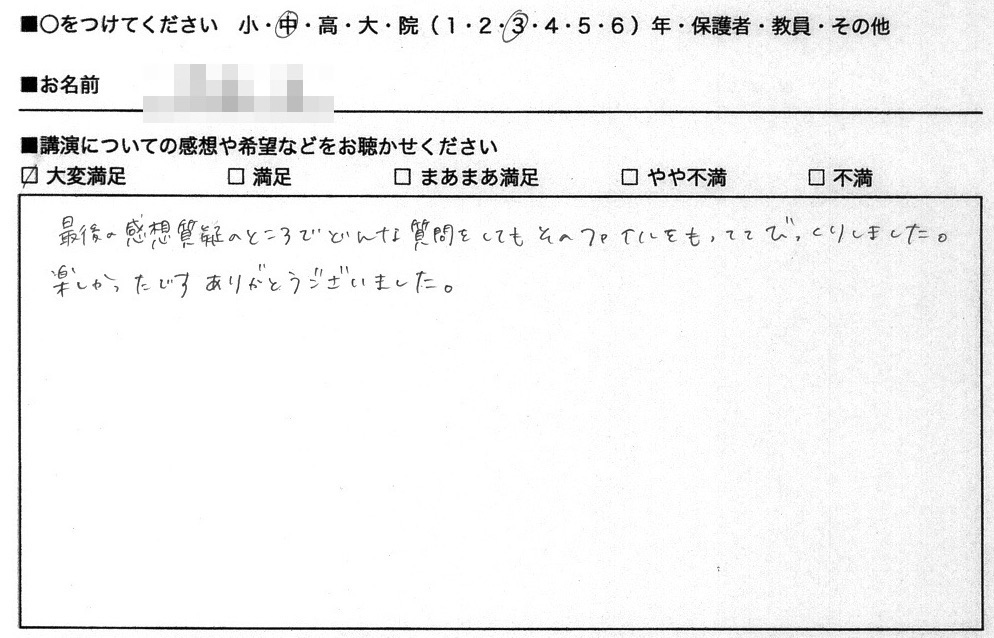 ■○をつけてください 小・中・高・大・院（1・2・3・4・5・6）年・保護者・教員・その他
■お名前
■講演についての感想や希望などをお聴かせください
☑ 大変満足 □ 満足 □ まあまあ満足 □ やや不満 □ 不満
最後の感想質疑のところでどんな質問をしてもそのファイルをもっててびっくりしました。
楽しかったですありがとうございました。